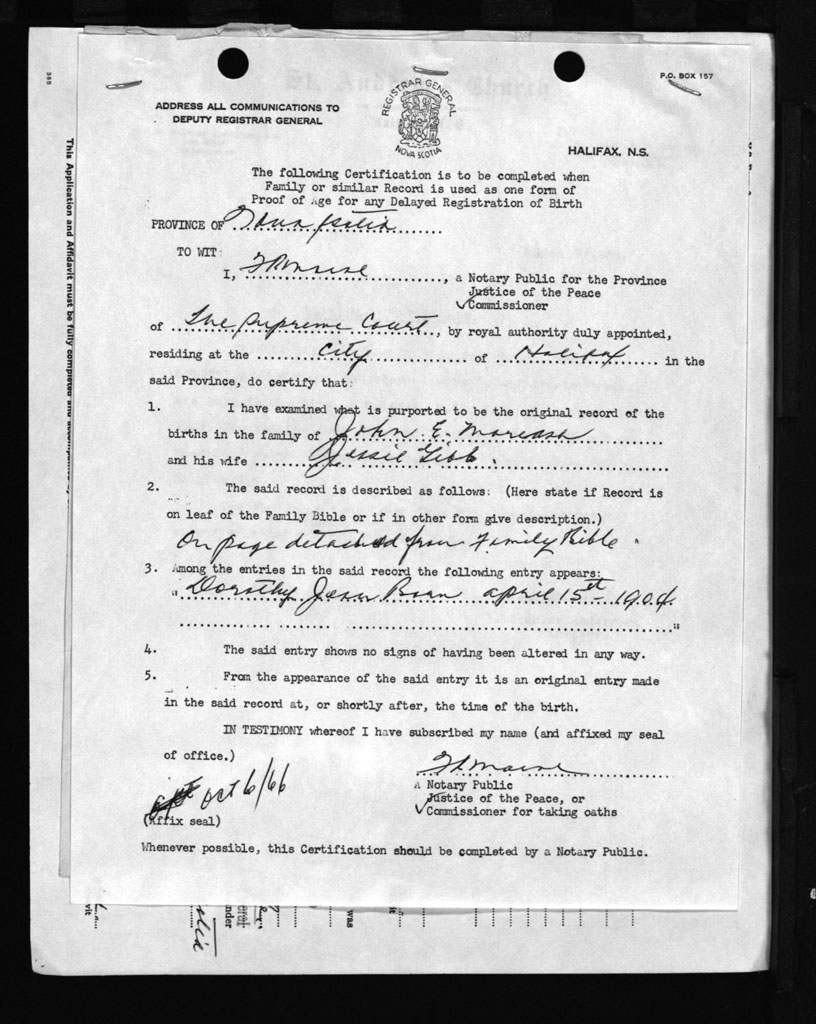 P.O. BOX 157
ADDRESS ALL COMMUNICATIONS TO
DEPUTY REGISTRAR GENERAL
REGISTRAR GENERAL
NOVA SCOTIA
HALIFAX, N.S.
The following Certification is to be completed when
Family or similar Record is used as one form of
Proof of Age for any Delayed Registration of Birth
PROVINCE OF Nova Scotia
TO WIT:
I, , a Notary Public for the Province
Justice of the Peace
✓Commissioner
of The Supreme Court, by royal authority duly appointed,
residing at the City of Halifax in the
said Province, do certify that:
1. I have examined what is purported to be the original record of the
births in the family of John E. Moreash
and his wife Jessie Gibb.
2. The said record is described as follows: (Here state if Record is
on leaf of the Family Bible or if in other form give description.)
On page detached from Family Bible.
3. Among the entries in the said record the following entry appears:
"Dorothy Jean Born April 15st 1904.
"
4. The said entry shows no signs of having been altered in any way.
5. From the appearance of the said entry it is an original entry made
in the said record at, or shortly after, the time of the birth.
IN TESTIMONY whereof I have subscribed my name (and affixed my seal
of office.)
A Notary Public
Justice of the Peace, or
✓Commissioner for taking oaths
Oct 6/66
(Affix seal)
Whenever possible, this Certification should be completed by a Notary Public.
This Application and Affidavit must be fully completed and
was